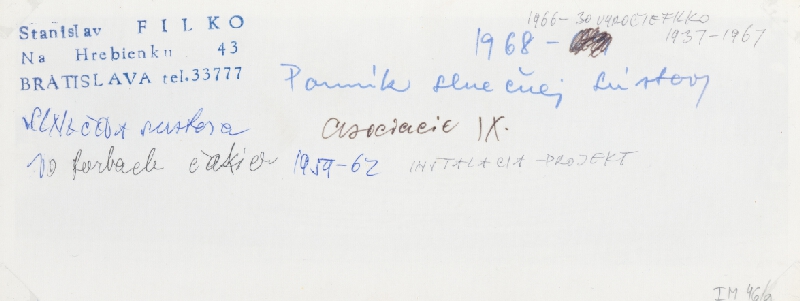 Stanislav FILKO
Na Hrebienku 43
BRATISLAVA tel.33777
1966-30 VYROCIE FILKO
1937-1967
1968-
Pomník slnečnej sústavy
slnečná sustava
asociacie IX.
vo farbach čakier 1959-62 INŠTALACIA-PROJEKT
IM 46/a